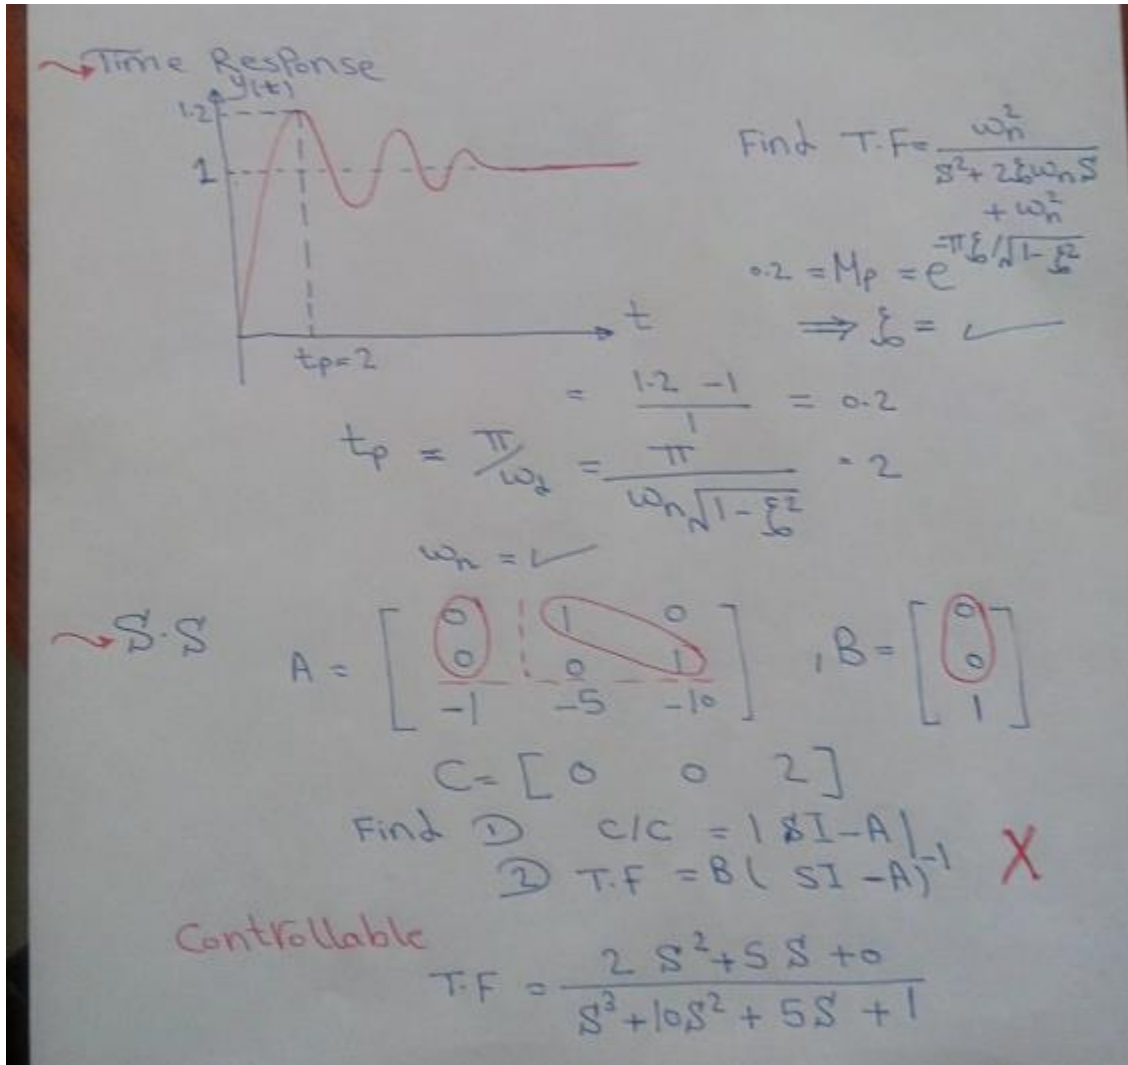 Time Response
y(t)
1.2
1
t
tp=2
Find T.F = ωn² / (S² + 2ξωnS + ωn²)
0.2 = Mp = e^(-πξ/√(1-ξ²))
⇒ ξ = ✓
= (1.2 - 1) / 1 = 0.2
tp = π/ωd = π / (ωn√(1-ξ²)) = 2
ωn = ✓
S.S
A = [ 0 1 0
0 0 1
-1 -5 -10 ] , B = [ 0
0
1 ]
C = [ 0 0 2 ]
Find ① C/C = |SI-A|
② T.F = B( SI-A)⁻¹ X
Controllable
T.F = (2 S² + 5 S + 0) / (S³ + 10S² + 5S + 1)